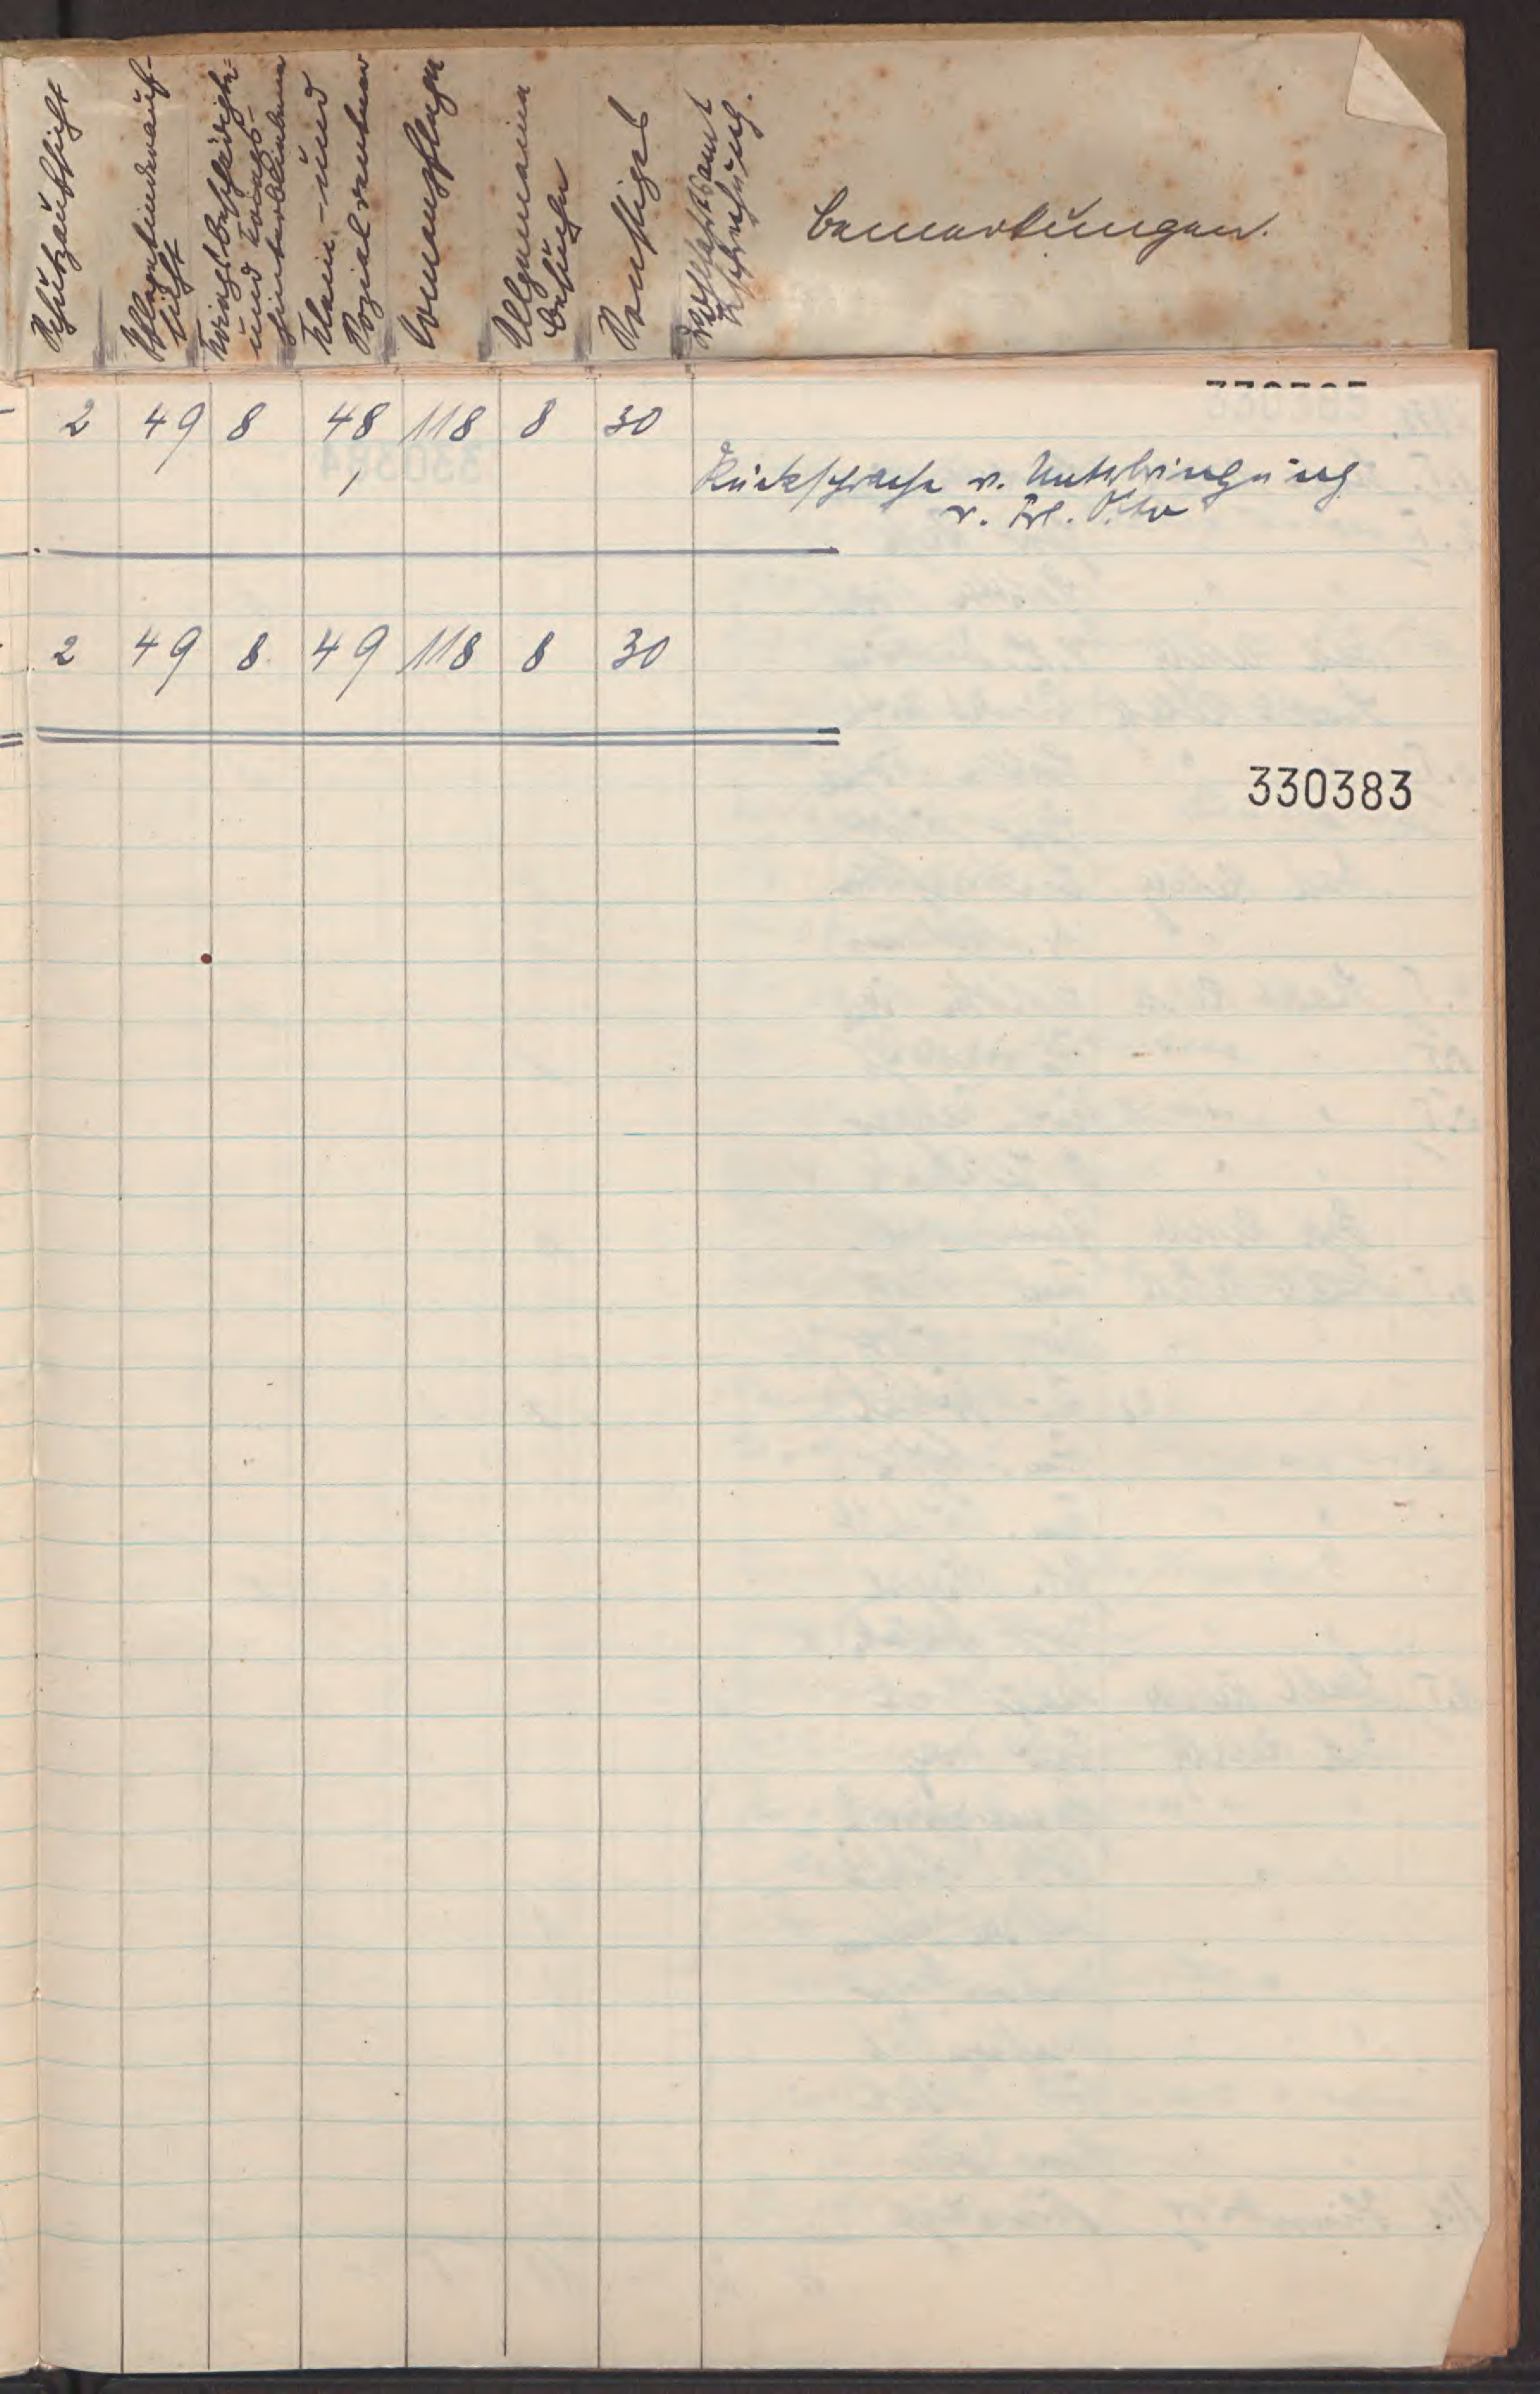 Schutzaufsicht
Pflegekinderauf-
sicht
Kriegsbeschädigte
und Kriegs-
hinterbliebene
Klein- und
Sozialrentner
Armenpflege
Allgemeine
Besuche
Sonstiges
Bemerkungen.
2 49 8 48 118 8 30
1
Rücksprache w. Unterbringung
v. Frl.
2 49 8 49 118 8 30
330383